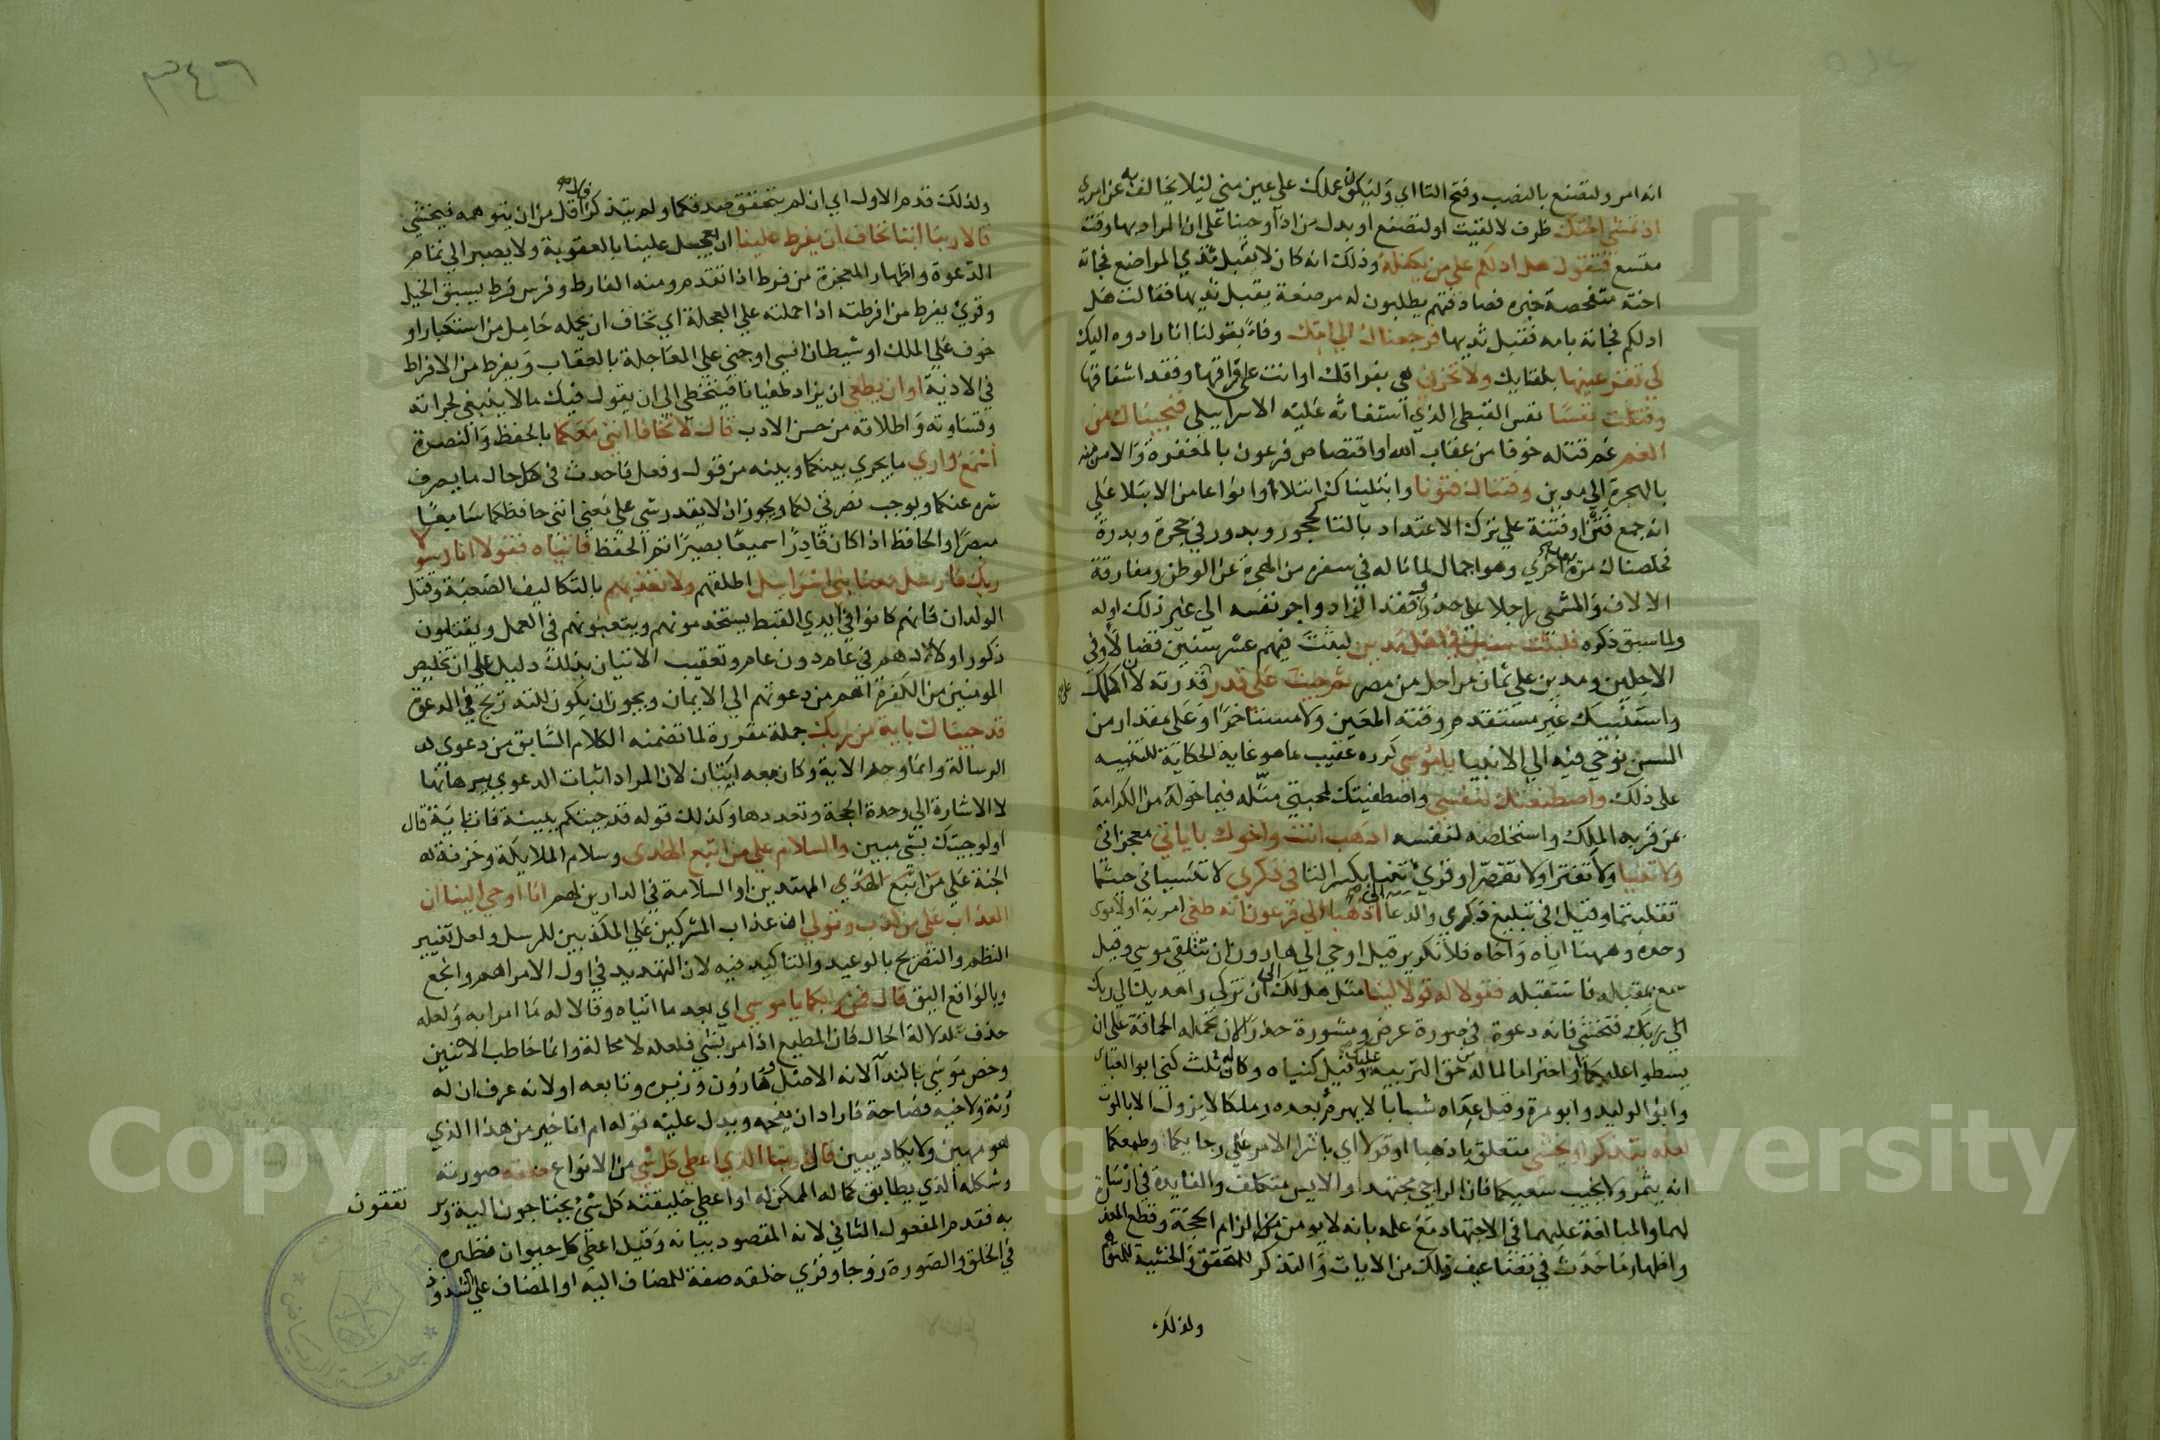 انه امر ولتصنع بالنصب وفتح التا اي وليكون عملك علي عين مني ليلا يخالف به عن امري
اذ تمشي اختك ظرف لالقيت او لتصنع او بدل من اذ اوحينا علي ان المراد بها وقت
متسع فتقول هل ادلكم علي من يكفله وذلك انه كان لا يقبل ثدي المراضع فجاته
اخته متفحصة خبره فصادفتهم يطلبون له مرضعة يقبل ثديها فقالت هل
ادلكم فجاته بامه فقبل ثديها فرجعناك الي امك وفاء بقولنا انا رادوه اليك
كي تقر عينها بلقايك ولا تحزن هي بفراقك او انت علي فراقها وفقد اشفاقها
وقتلت نفسا نفس القبطي الذي استغاثه عليه الاسراييلي فنجيناك من
الغم غم قتله خوفا من عقاب الله او اقتصاص فرعون بالمغفرة والامن منه
بالهجرة الي مدين وفتناك فتونا وابتليناك ابتلاا او انواعا من الابتلا علي
انه جمع فتن او فتنة علي ترك الاعتداد بالتا كحجور وبدور في حجرة وبدرة
فخلصناك مرة بعد اخري وهو اجمال لما ناله في سفره من الهجرة عن الوطن ومفارقة
الالاف والمشي راجلا علي حذر وفقد الزاد واجر نفسه الي غير ذلك او له
ولما سبق ذكره فلبثت سنين في اهل مدين لبثت فيهم عشر سنين قضا لاوفي
الاجلين ومدين علي ثمان مراحل من مصر ثم جيت علي قدر قدرته لان اكلمك
واستنبيك غير مستقدم وقته المعين ولا مستاخر او علي مقدار من
السن يوحي فيه الي الانبيا يا موسي كرره عقيب ما هو غاية الحكاية للتنبيه
علي ذلك واصطنعتك لنفسي واصطفيتك لمحبتي مثله فيما خوله من الكرامة
بمن قربه الملك واستخلصه لنفسه اذهب انت واخوك باياتي معجزاتي
ولا تنيا ولا تفترا ولا تقصرا وقري تنيا بكسر التا في ذكري لا تنسياني حيثما
تقلبتما وقيل في تبليغ ذكري والدعا الي اذهبا الي فرعون انه طغي امر به اولا موسي
وحده وههنا اياه واخاه فلا تكرير قيل اوحي الي هارون ان يتلقي موسي وقيل
سمع بمقبله فاستقبله فقولا له قولا لينا مثل هل لك الي ان تزكي واهديك الي ربك
الي ربك فتخشي فانه دعوة في صورة عرض ومشورة حذرا ان تحمله الحماقة علي ان
يسطو عليكما او احتراما لما له من حق التربية عليك وقيل كنياه وكان له ثلث كني ابو العباس
وابو الوليد وابو مرة وقيل عداه شبابا لا يهرم بعده وملكا لا يزول الا بالموت
لعله يتذكر او يخشي متعلق باذهبا او قولا اي باشرا الامر علي رجايكما وطمعكما
انه يثمر ولا يخيب سعيكما فان الراجي مجتهد والايس متكلف والفايدة في ارسال
لهما والمبالغة عليهما في الاجتهاد مع علمه بانه لا يومن الزام الحجة وقطع المعذرة
واظهار ما حدث في تضاعيف ذلك من الايات والتذكر للمتحقق والخشية للمتوهم
ولذلك
٣٤٦
ولذلك قدم الاول اي ان لم يتحقق صدقكما ولم يتذكر فلا اقل من ان يتوهمه فيخشي
قالا ربنا اننا نخاف ان يفرط علينا ان يعجل علينا بالعقوبة ولا يصبر الي تمام
الدعوة واظهار المعجزة من فرط اذا تقدم ومنه الفارط وفرس فرط يسبق الخيل
وقري يفرط من افرطته اذا حملته علي العجلة اي نخاف ان يحمله حامل من استكبار او
خوف علي الملك او شيطان انسي او جني علي المعاجلة بالعقاب ويفرط من الافراط
في الاذية او ان يطغي ان يزداد طغيانا فيتخطي الي ان يقول فيك ما لا ينبغي لجراته
وقساوته واطلاقه من حسن الادب قال لا تخافا انني معكما بالحفظ والنصرة
اسمع واري ما يجري بينكما وبينه من قول وفعل فاحدث في كل حال ما يصرف
شره عنكما ويوجب نصرتي لكما ويجوز ان لا يقدر شي علي معني انني حافظكما سامعا
مبصرا والحافظ اذا كان قادرا سميعا بصيرا تم الحفظ فاتياه فقولا انا رسولا
ربك فارسل معنا بني اسراييل اطلقهم ولا تعذبهم بالتكاليف الصعبة وقتل
الولدان فانهم كانوا في ايدي القبط يستخدمونهم ويتعبونهم في العمل ويقتلون
ذكور اولادهم في عام دون عام وتعقيب الاتيان بذلك دليل علي ان تخليص
المومنين من الكفرة اهم من دعوتهم الي الايمان ويجوز ان يكون للتدريج في الدعوة
قد جيناك باية من ربك جملة مقررة لما تضمنه الكلام السابق من دعوي
الرسالة وانما وحد الاية وكان معه ايتان لان المراد اثبات الدعوي ببرهانها
لا الاشارة الي وحدة الحجة وتعددها وكذلك قوله قد جيتكم ببينة فات باية قال
اولو جيتك بشي مبين والسلام علي من اتبع الهدي وسلام الملايكة وخزنة
الجنة علي من اتبع الهدي المهتدين او السلامة في الدارين لهم انا اوحي الينا ان
العذاب علي من كذب وتولي ان عذاب المشركين علي المكذبين للرسل ولعل تغيير
النظم والتصريح بالوعيد والتاكيد فيه لان التهديد في اول الامر اهم وانجع
وبالواقع اليق قال فمن ربكما يا موسي اي بعد ما اتياه وقالا له ما امرا به ولعله
حذف لدلالة الحال فان المطيع اذا امر بشي فعله لا محالة وانما خاطب الاثنين
وخص موسي بالندا لانه الاصل وهارون وزيره وتابعه او لانه عرف ان له
رتة ولاخيه فصاحة فاراد ان يفحمه ويدل عليه قوله ام انا خير من هذا الذي
هو مهين ولا يكاد يبين قال ربنا الذي اعطي كل شي من الانواع خلقه صورته
وشكله الذي يطابق كماله الممكن له او اعطي خليقته كل شي يحتاجون اليه
به فقدم المفعول الثاني لانه المقصود بيانه وقيل اعطي كل حيوان نظيره
في الخلق والصورة زوجا وقري خلقه صفة للمضاف اليه او المضاف علي الشذوذ
Copyright © King Saud University